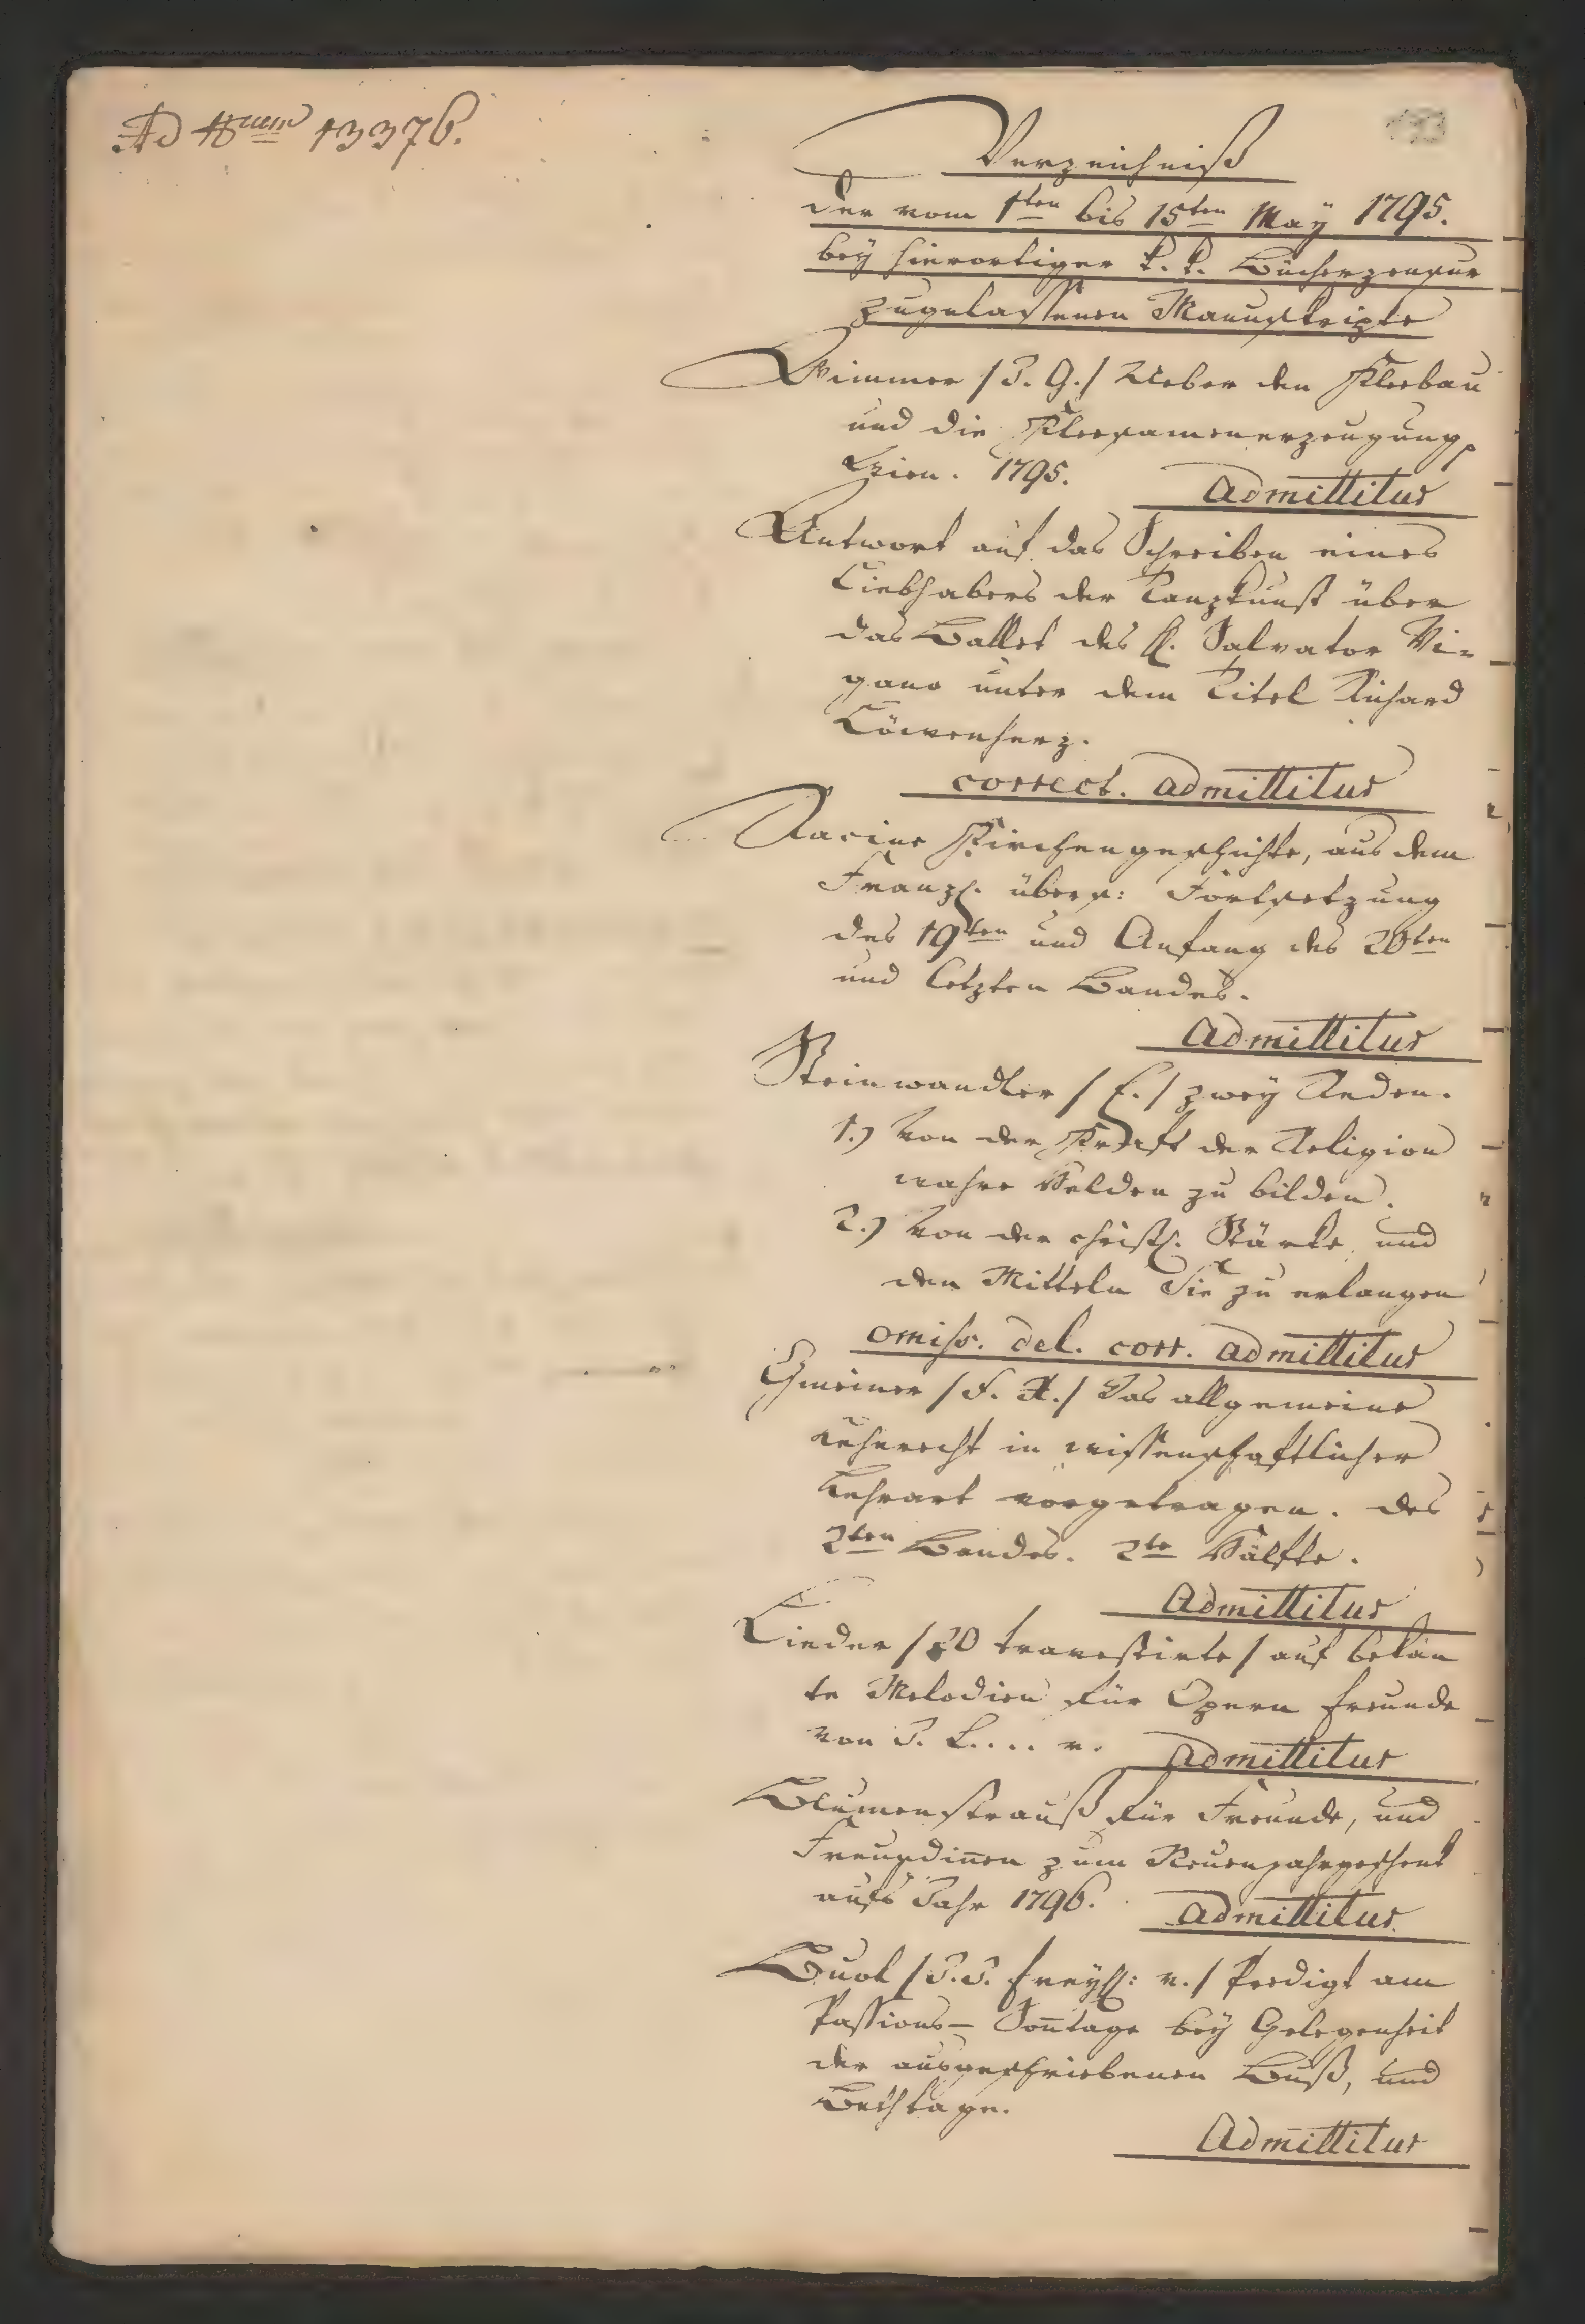 Ad Num 13376.
193
Verzeichniß
der vom 1ten bis 15ten May 1795.
bey hierortiger k. k. Bücherzensur
zugelassenen Manuskripte
Wimmer /J. G./ Ueber den Kleebau
und die Kleesamenerzeugung,
Wien. 1795. Admittitur
Antwort auf das Schreiben eines
Liebhabers der Tanzkunst über
das Ballet des H. Salvator Vi-
gano unter dem Titel Richard
Löwenherz.
correct. admittitur
Racine Kirchengeschichte, aus dem
Franzs. übers: Fortsetzung
des 19ten und Anfang des 20ten
und letzten Bandes.
Admittitur
Steinwandter /E./ zwey Reden.
1.) Von der Kraft der Religion
wahre Helden zu bilden.
2.) Von der christl. Stärke und
den Mitteln Sie zu erlangen
omiss. del. corr. admittitur
Gmeiner /F. X./ Das allgemeine
Lehnrecht in wissenschaftlicher
Lehrart vorgetragen. Des
2ten Bandes. 2te Hälfte.
Admittitur
Lieder /20 travestirte/ auf bekan
te Melodien für Opern freunde
von J. L.... r. Admittitur
Blumenstrauß für Freunde, und
Freundinen zum Neuenjahrgeschenk
aufs Jahr 1796. Admittitur
Buol /J. J. freyh: v./ Predigt am
Passions- Sontage bey Gelegenheit
der ausgeschriebenen Buß, und
Bethtage.
Admittitur